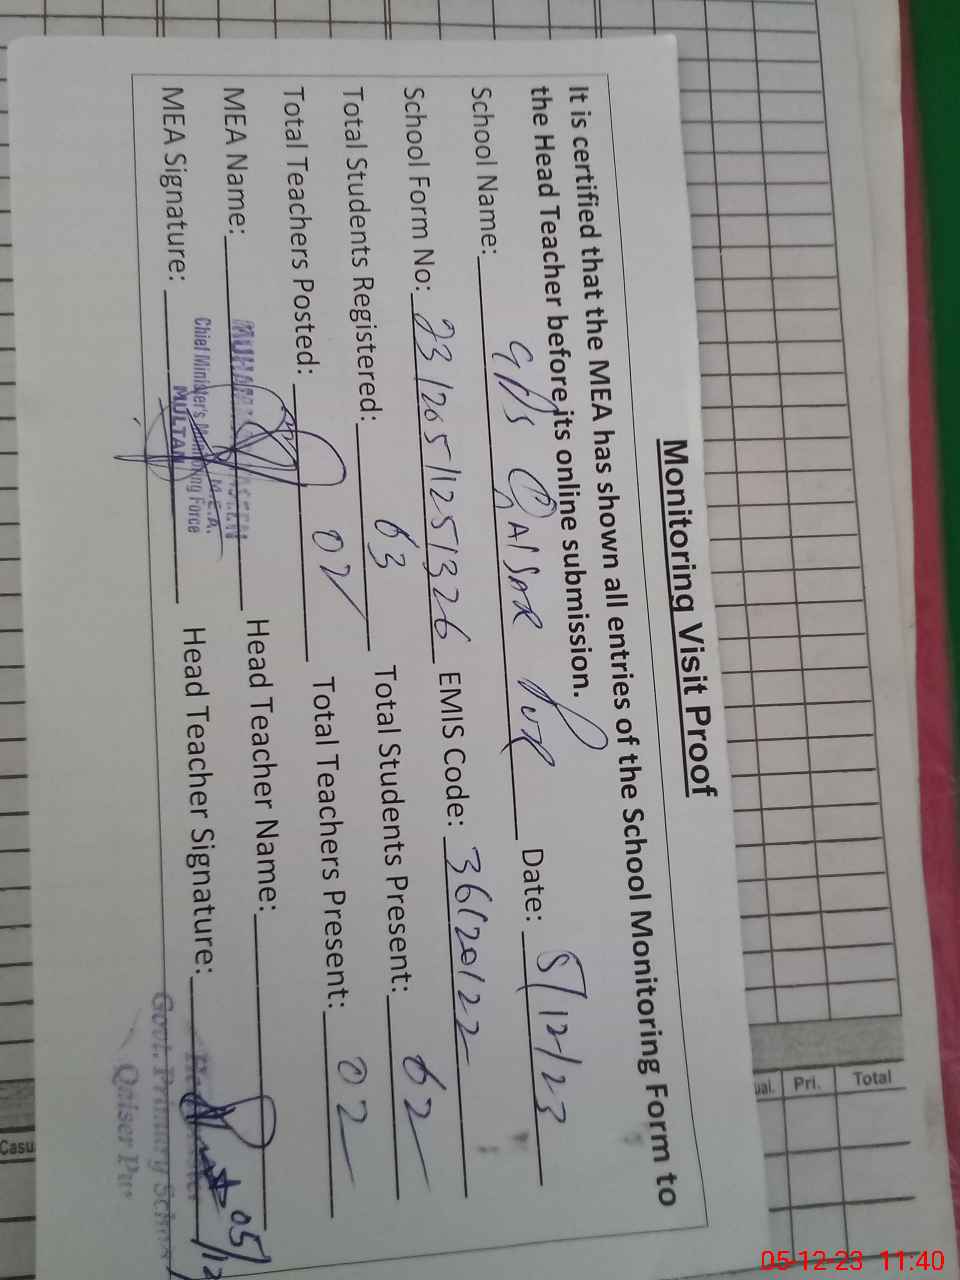 Monitoring Visit Proof
It is certified that the MEA has shown all entries of the School Monitoring Form to
the Head Teacher before its online submission.
School Name: G/P/S QAISAR PUR Date: 5/12/23
School Form No: 23/265/125/326 EMIS Code: 36120122
Total Students Registered: 63 Total Students Present: 62
Total Teachers Posted: 02 Total Teachers Present: 02
MEA Name: Head Teacher Name:
M.E.A.
Chief Minister's Monitoring Force
MULTAN
MEA Signature: Head Teacher Signature: 05/12
Govt. Primary School
Qaiser Pur
Pri.
Total
Casu
05-12-23 11:40